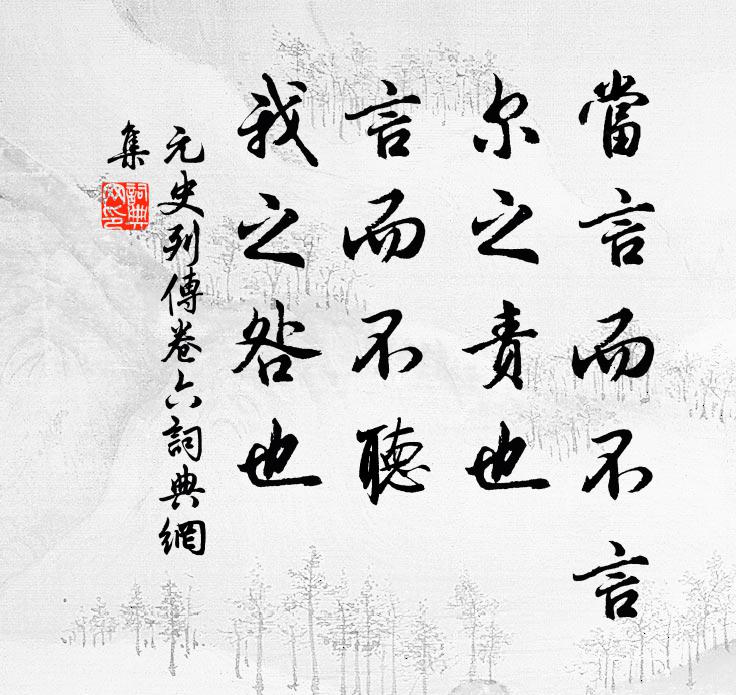 當言而不言
尔之責也
言而不聽
我之咎也
元史列傳卷六詞典網
集
詞典